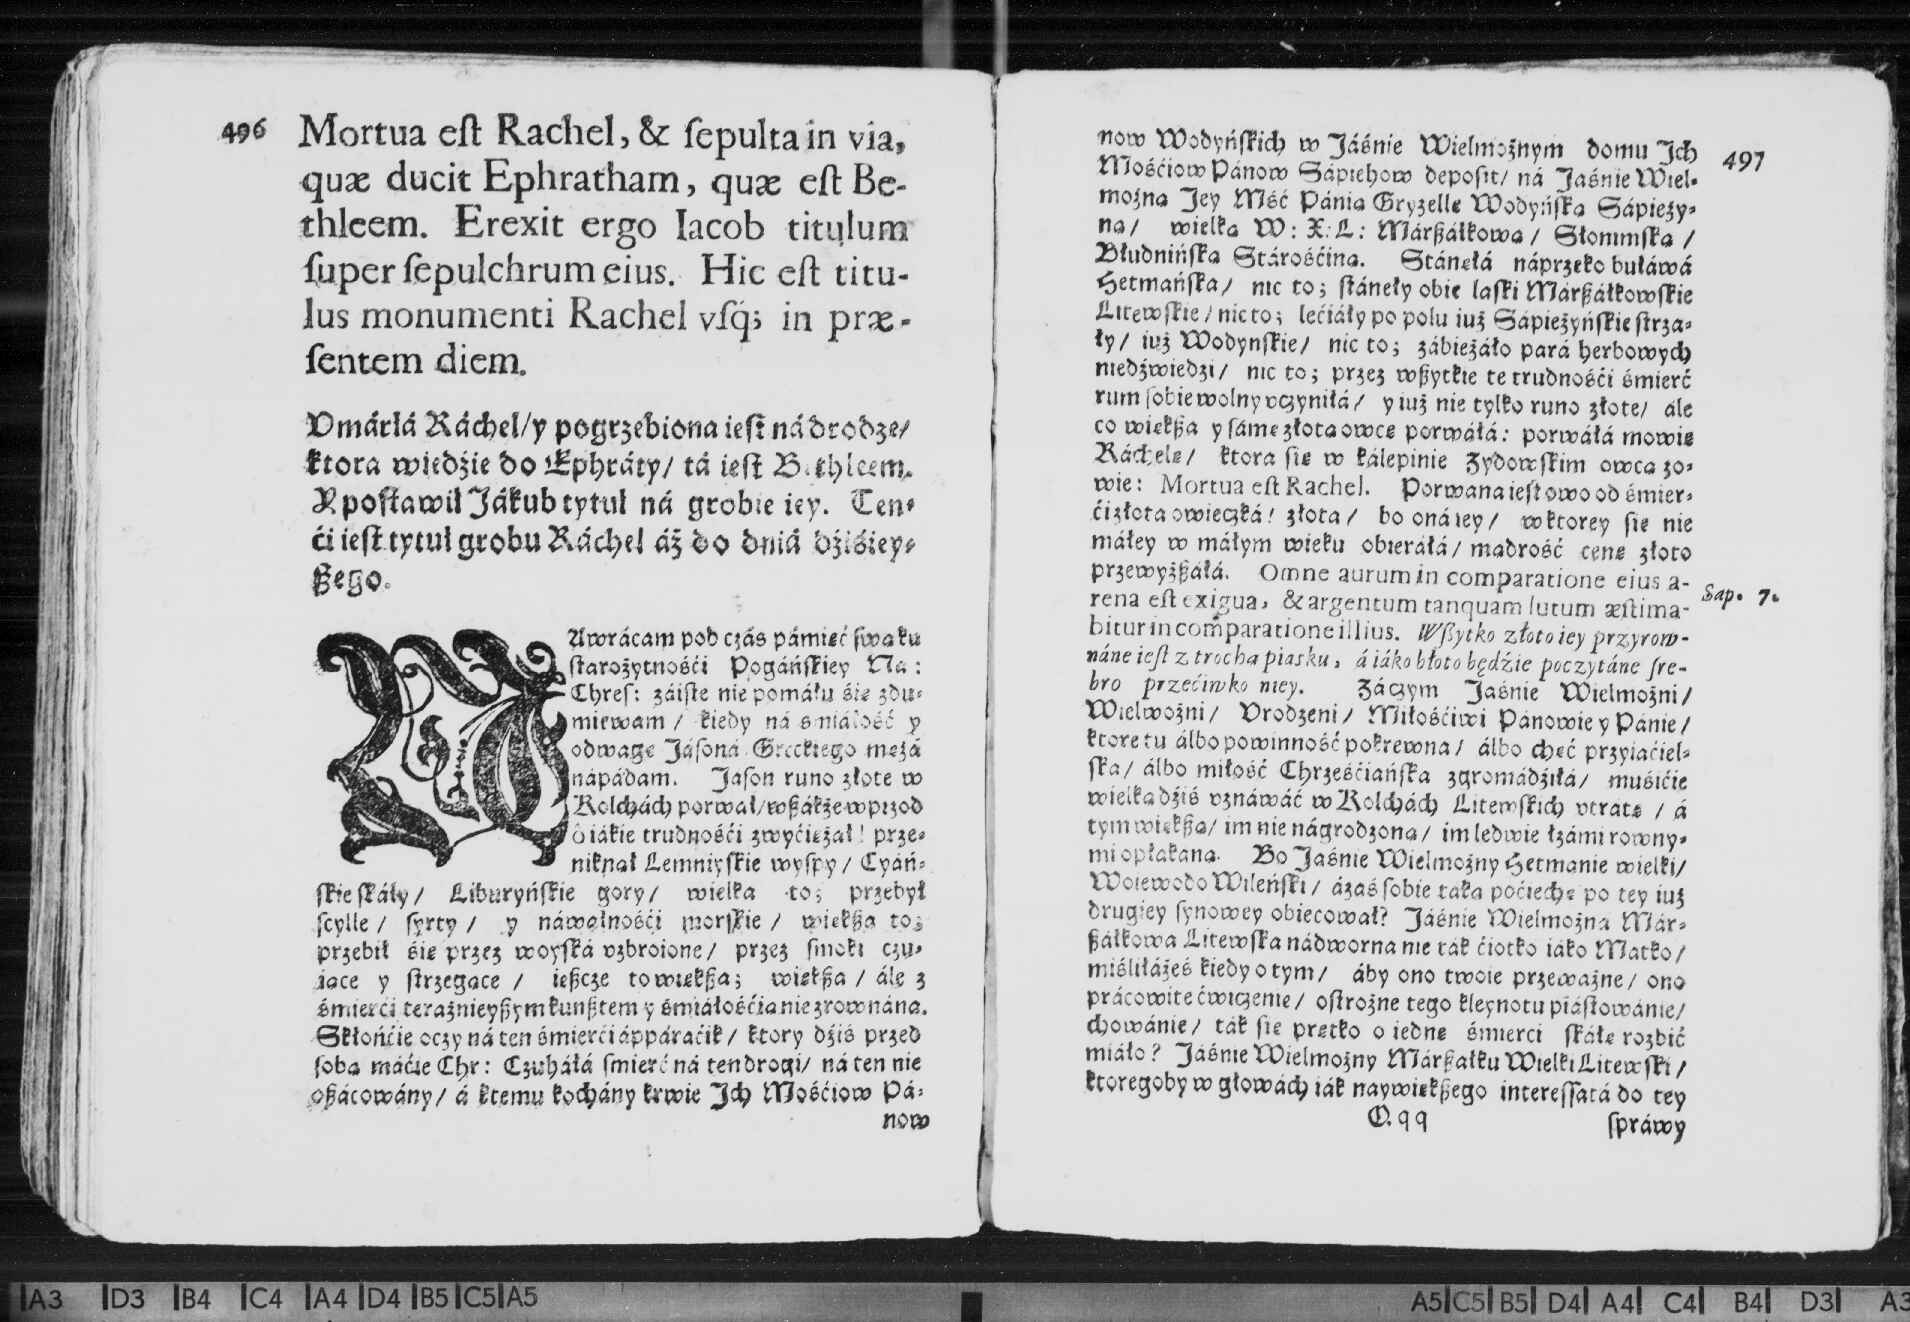 496
Mortua eſt Rachel, & ſepulta in via,
quæ ducit Ephratham, quæ eſt Be-
thleem. Erexit ergo Iacob titulum
ſuper ſepulchrum eius. Hic eſt titu-
lus monumenti Rachel vſq́; in præ-
ſentem diem.
Vmárłá Ráchel/ y pogrzebiona ieſt ná drodze/
ktora wiedźie do Ephráty/ tá ieſt Bethleem.
Y poſtawił Jákub tytuł ná grobie iey. Ten-
ći ieſt tytuł grobu Ráchel áż do dniá dźiśiey-
ßego.
NAwrácam pod czás pámięć ſwą ku
ſtarożytnośći Pogáńſkiey Na:
Chreſ: záiſte nie pomáłu śię zdu-
miewam/ kiedy ná śmiáłość y
odwagę Jáſoná Greckiego mężá
nápádam. Jaſon runo złote w
Kolchách porwał/ wßákże wprzod
ô iákie trudnośći zwyćiężał! prze-
niknął Lemniyſkie wyſpy/ Cyáń-
ſkie ſkáły/ Liburyńſkie gory/ wielka to; przebył
ſcylle/ ſyrty/ y náwáłnośći morſkie/ więkßa to;
przebił śię przez woyſká vzbroione/ przez ſmoki czu-
iące y ſtrzegące/ ießcze to więkßa; więkßa/ ále z
śmierći teraźnieyßym kunßtem y śmiáłośćią nie zrownána.
Skłońćie oczy ná ten śmierći áppáraćik/ ktory dźiś przed
ſobą máćie Chr: Czuháłá śmierć ná ten drogi/ ná ten nie
oßácowány/ á ktemu kochány krwie Jch Mośćiow Pá-
now
497
now Wodyńſkich w Jáśnie Wielmożnym domu Jch
Mośćiow Pánow Sápiehow depoſit/ ná Jaśnie Wiel-
możną Jey Mść Pánią Gryzellę Wodyńſką Sápieży-
nę/ wielką W: X: L: Márßáłkową/ Słonimſką/
Błudnińſką Stárośćiną. Stánęłá náprzeko buławá
Hetmańſka/ nic to; ſtánęły obie laſki Márßáłkowſkie
Litewſkie/ nic to; lećiáły po polu iuż Sápieżyńſkie ſtrza-
ły/ iuż Wodynſkie/ nic to; zábieżáło pará herbowych
niedźwiedzi/ nic to; przez wßytkie te trudnośći śmierć
rum ſobie wolny vczyniłá/ y iuż nie tylko runo złote/ ale
co więkßa y ſáme złotą owcę porwáłá: porwáłá mowię
Ráchelę/ ktora się w kálepinie Zydowſkim owcą zo-
wie: Mortua eſt Rachel. Porwana ieſt owo od śmier-
ći złota owieczká! złota/ bo oná iey/ w ktorey się nie
máłey w máłym wieku obieráłá/ mądrość cenę złotą
przewyżßáłá. Omne aurum in comparatione eius a-
rena eſt exigua, & argentum tanquam lutum æſtima-
bitur in comparatione illius. Wßytko złoto iey przyrow-
náne ieſt z trochą piasku, á iáko błoto będźie poczytáne ſre-
bro przećiwko niey. Záczym Jaśnie Wielmożni/
Wielmożni/ Vrodzeni/ Miłośćiwi Pánowie y Pánie/
ktore tu álbo powinność pokrewna/ álbo chęć przyiaćiel-
ska/ álbo miłość Chrześćiáńſka zgromádźiłá/ muśićie
wielką dźiś vznáwáć w Kolchách Litewſkich vtratę/ á
tym więkßą/ im nie nágrodzoną/ im ledwie łzámi rowny-
mi opłakaną. Bo Jaśnie Wielmożny Hetmanie wielki/
Woiewodo Wileńſki/ ázaś ſobie taką poćiechę po tey iuż
drugiey ſynowey obiecował? Jáśnie Wielmożna Már-
ßáłkowa Litewſka nádworna nie ták ćiotko iáko Matko/
miśliłáżeś kiedy o tym/ áby ono twoie przeważne/ ono
prácowite ćwiczenie/ oſtrożne tego kleynotu piáſtowánie/
chowánie/ ták się prętko o iednę śmierci ſkáłę rozbić
miáło? Jáśnie Wielmożny Márßałku Wielki Litewſki/
ktoregoby w głowách iák naywiękßego intereſſatá do tey
Sap. 7.
Qqq
ſpráwy
A3 D3 B4 C4 A4 D4 B5 C5 A5
A5 C5 B5 D4 A4 C4 B4 D3 A3